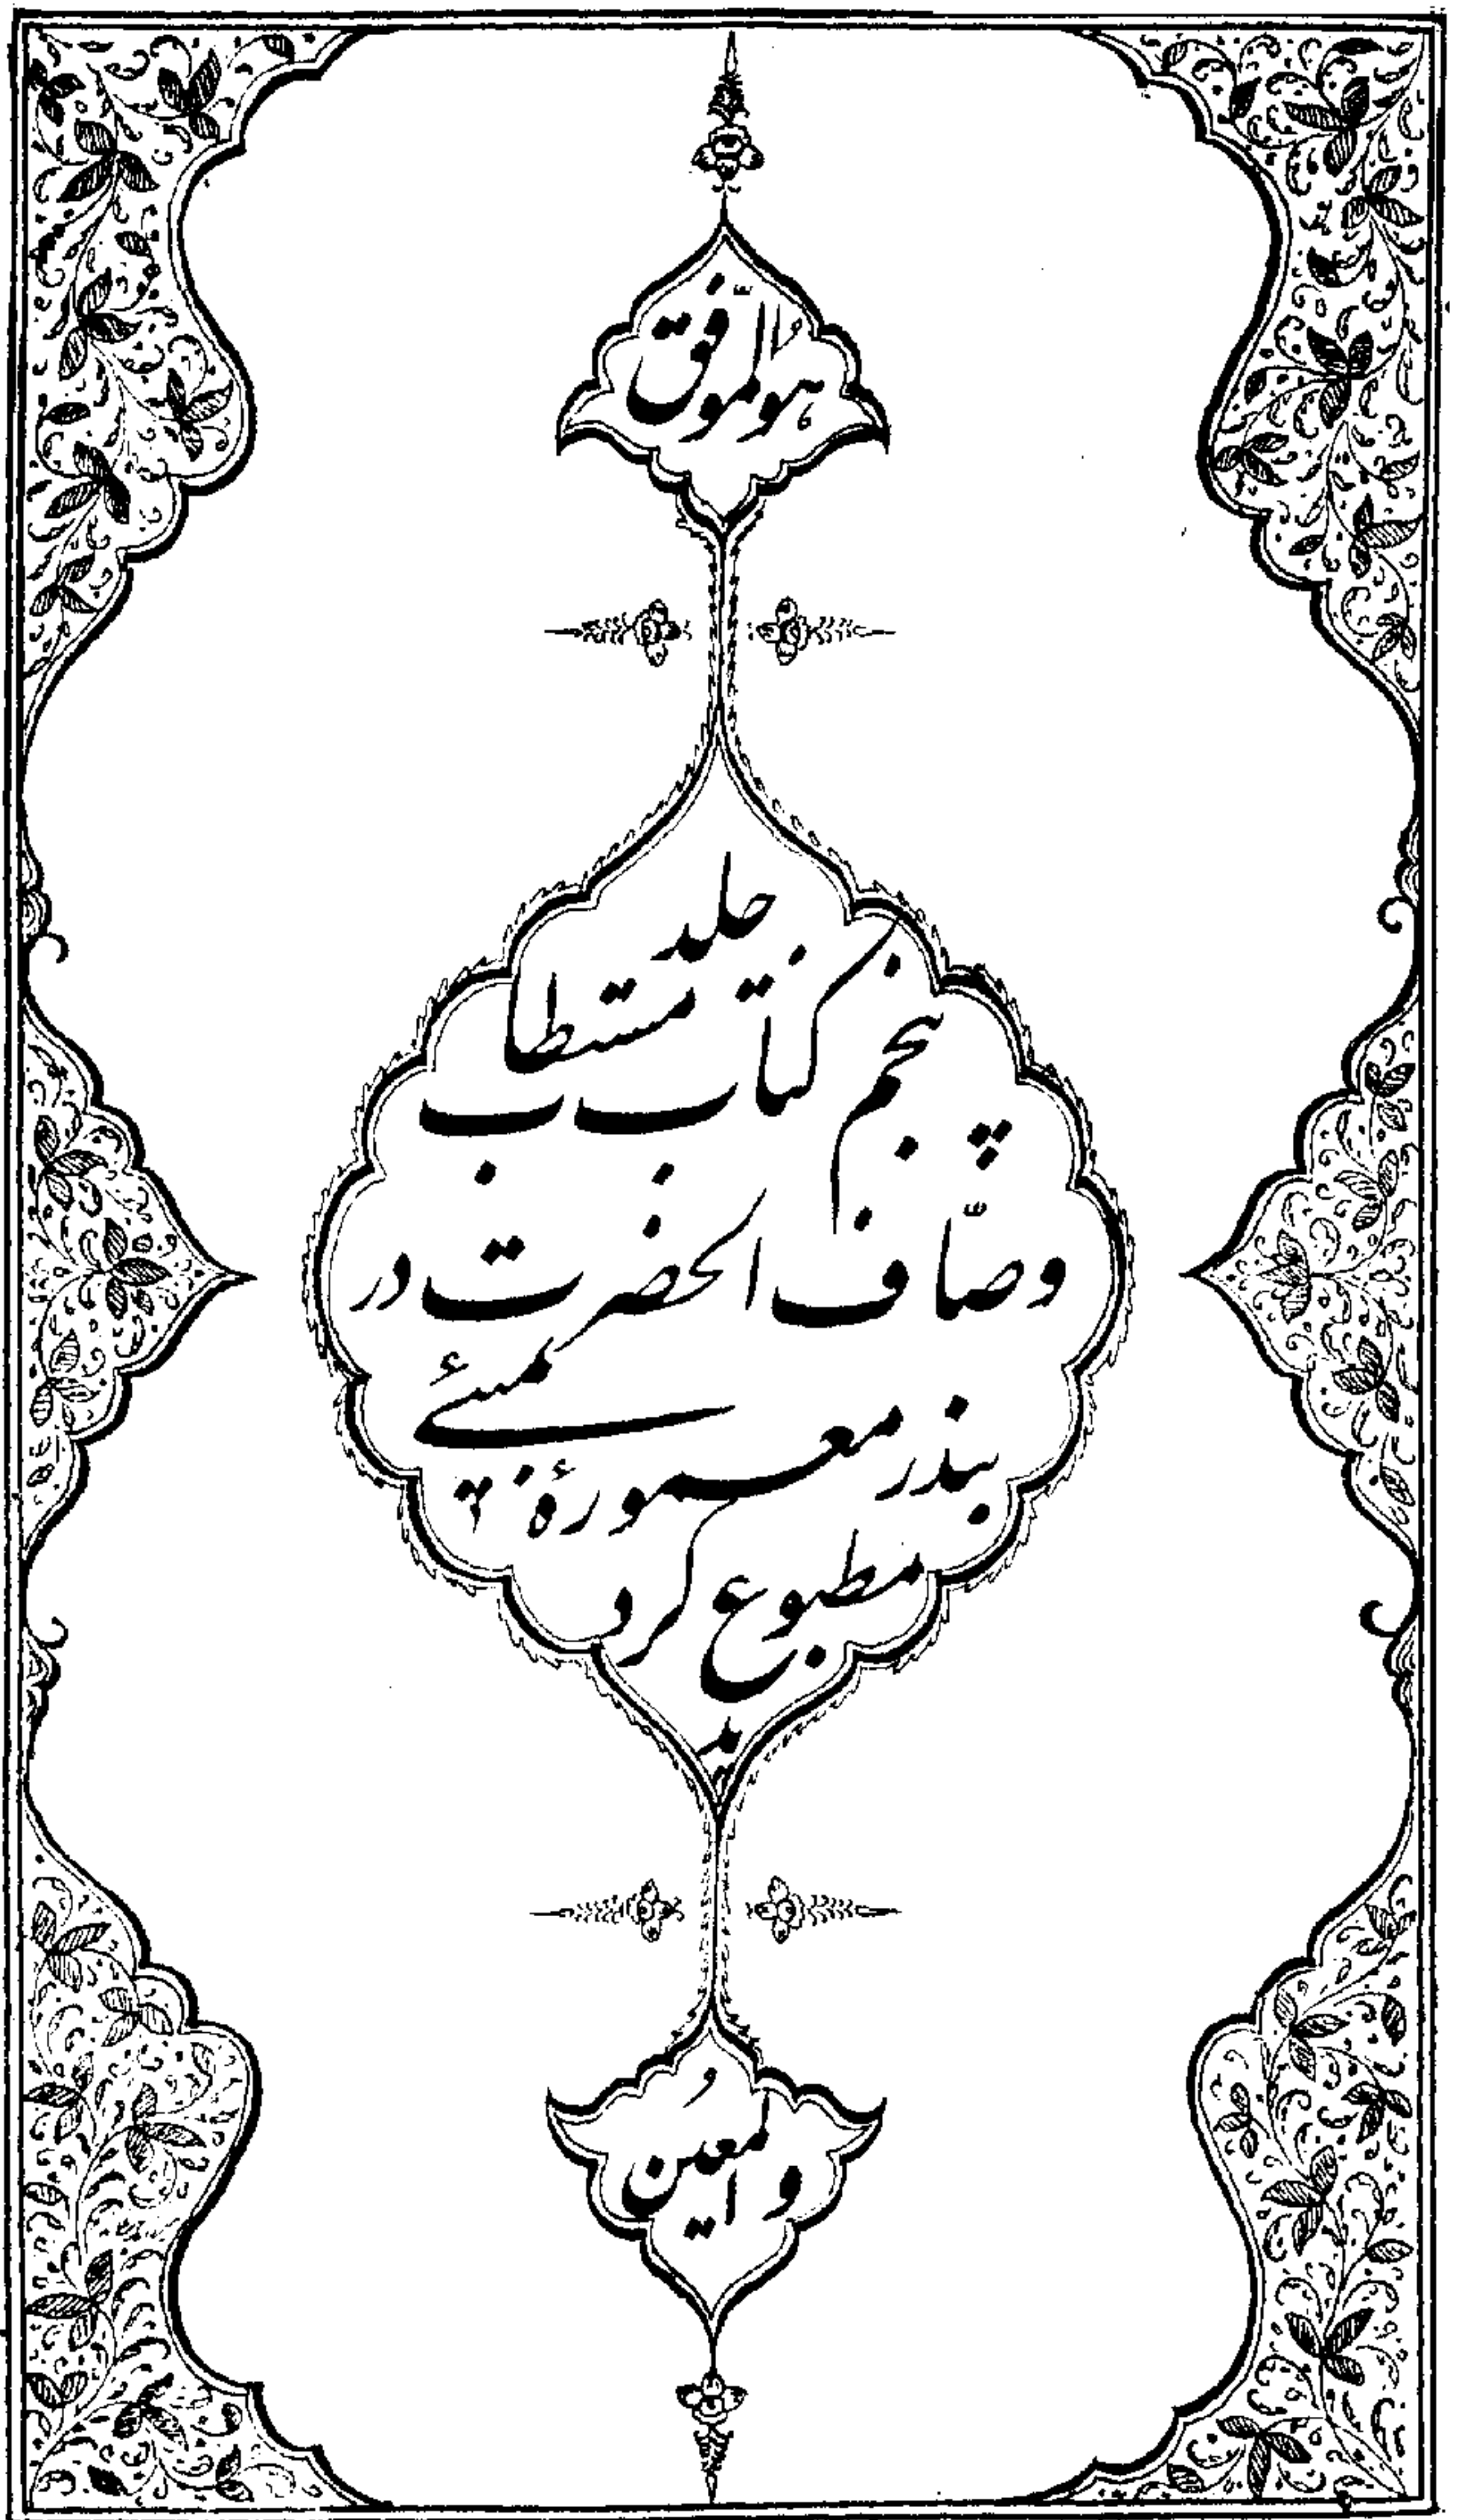 هوالموفّق
جلد
پنجم کتاب مستطاب
وصّاف الحضرت در
بندر معمورۀ بمبئی
مطبوع کردید
والمعین